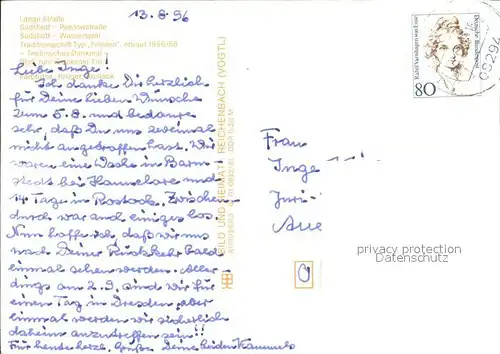 13.8.96
Lange Straße
Südstadt - Wasserspiel
Traditionsschiff Typ „Frieden“, erbaut 1956/58
Liebe Inge!
Ich danke Dir herzlich
für Deine lieben Wünsche
zum 5.8. und bedaure
sehr, daß Du uns zweimal
nicht angetroffen hast. Wir
waren eine Woche in Barm-
stedt bei Hannelore und
14 Tage in Rostock. Zwischen-
durch war auch einiges los.
Nun hoffe ich, daß wir uns
nach Deiner Rückkehr bald
einmal sehen werden. Aller-
dings am 2.9. sind wir für
einen Tag in Dresden, aber
einmal werden wir sicherlich
daheim anzutreffen sein!!
Für heute herzl. Grüße Deine beiden
BILD UND HEIMAT REICHENBACH (VOGTL)
Deutsche Bundespost
80
Rahel Varnhagen von Ense
08294
Frau
Inge
Aue
privacy protection
Datenschutz